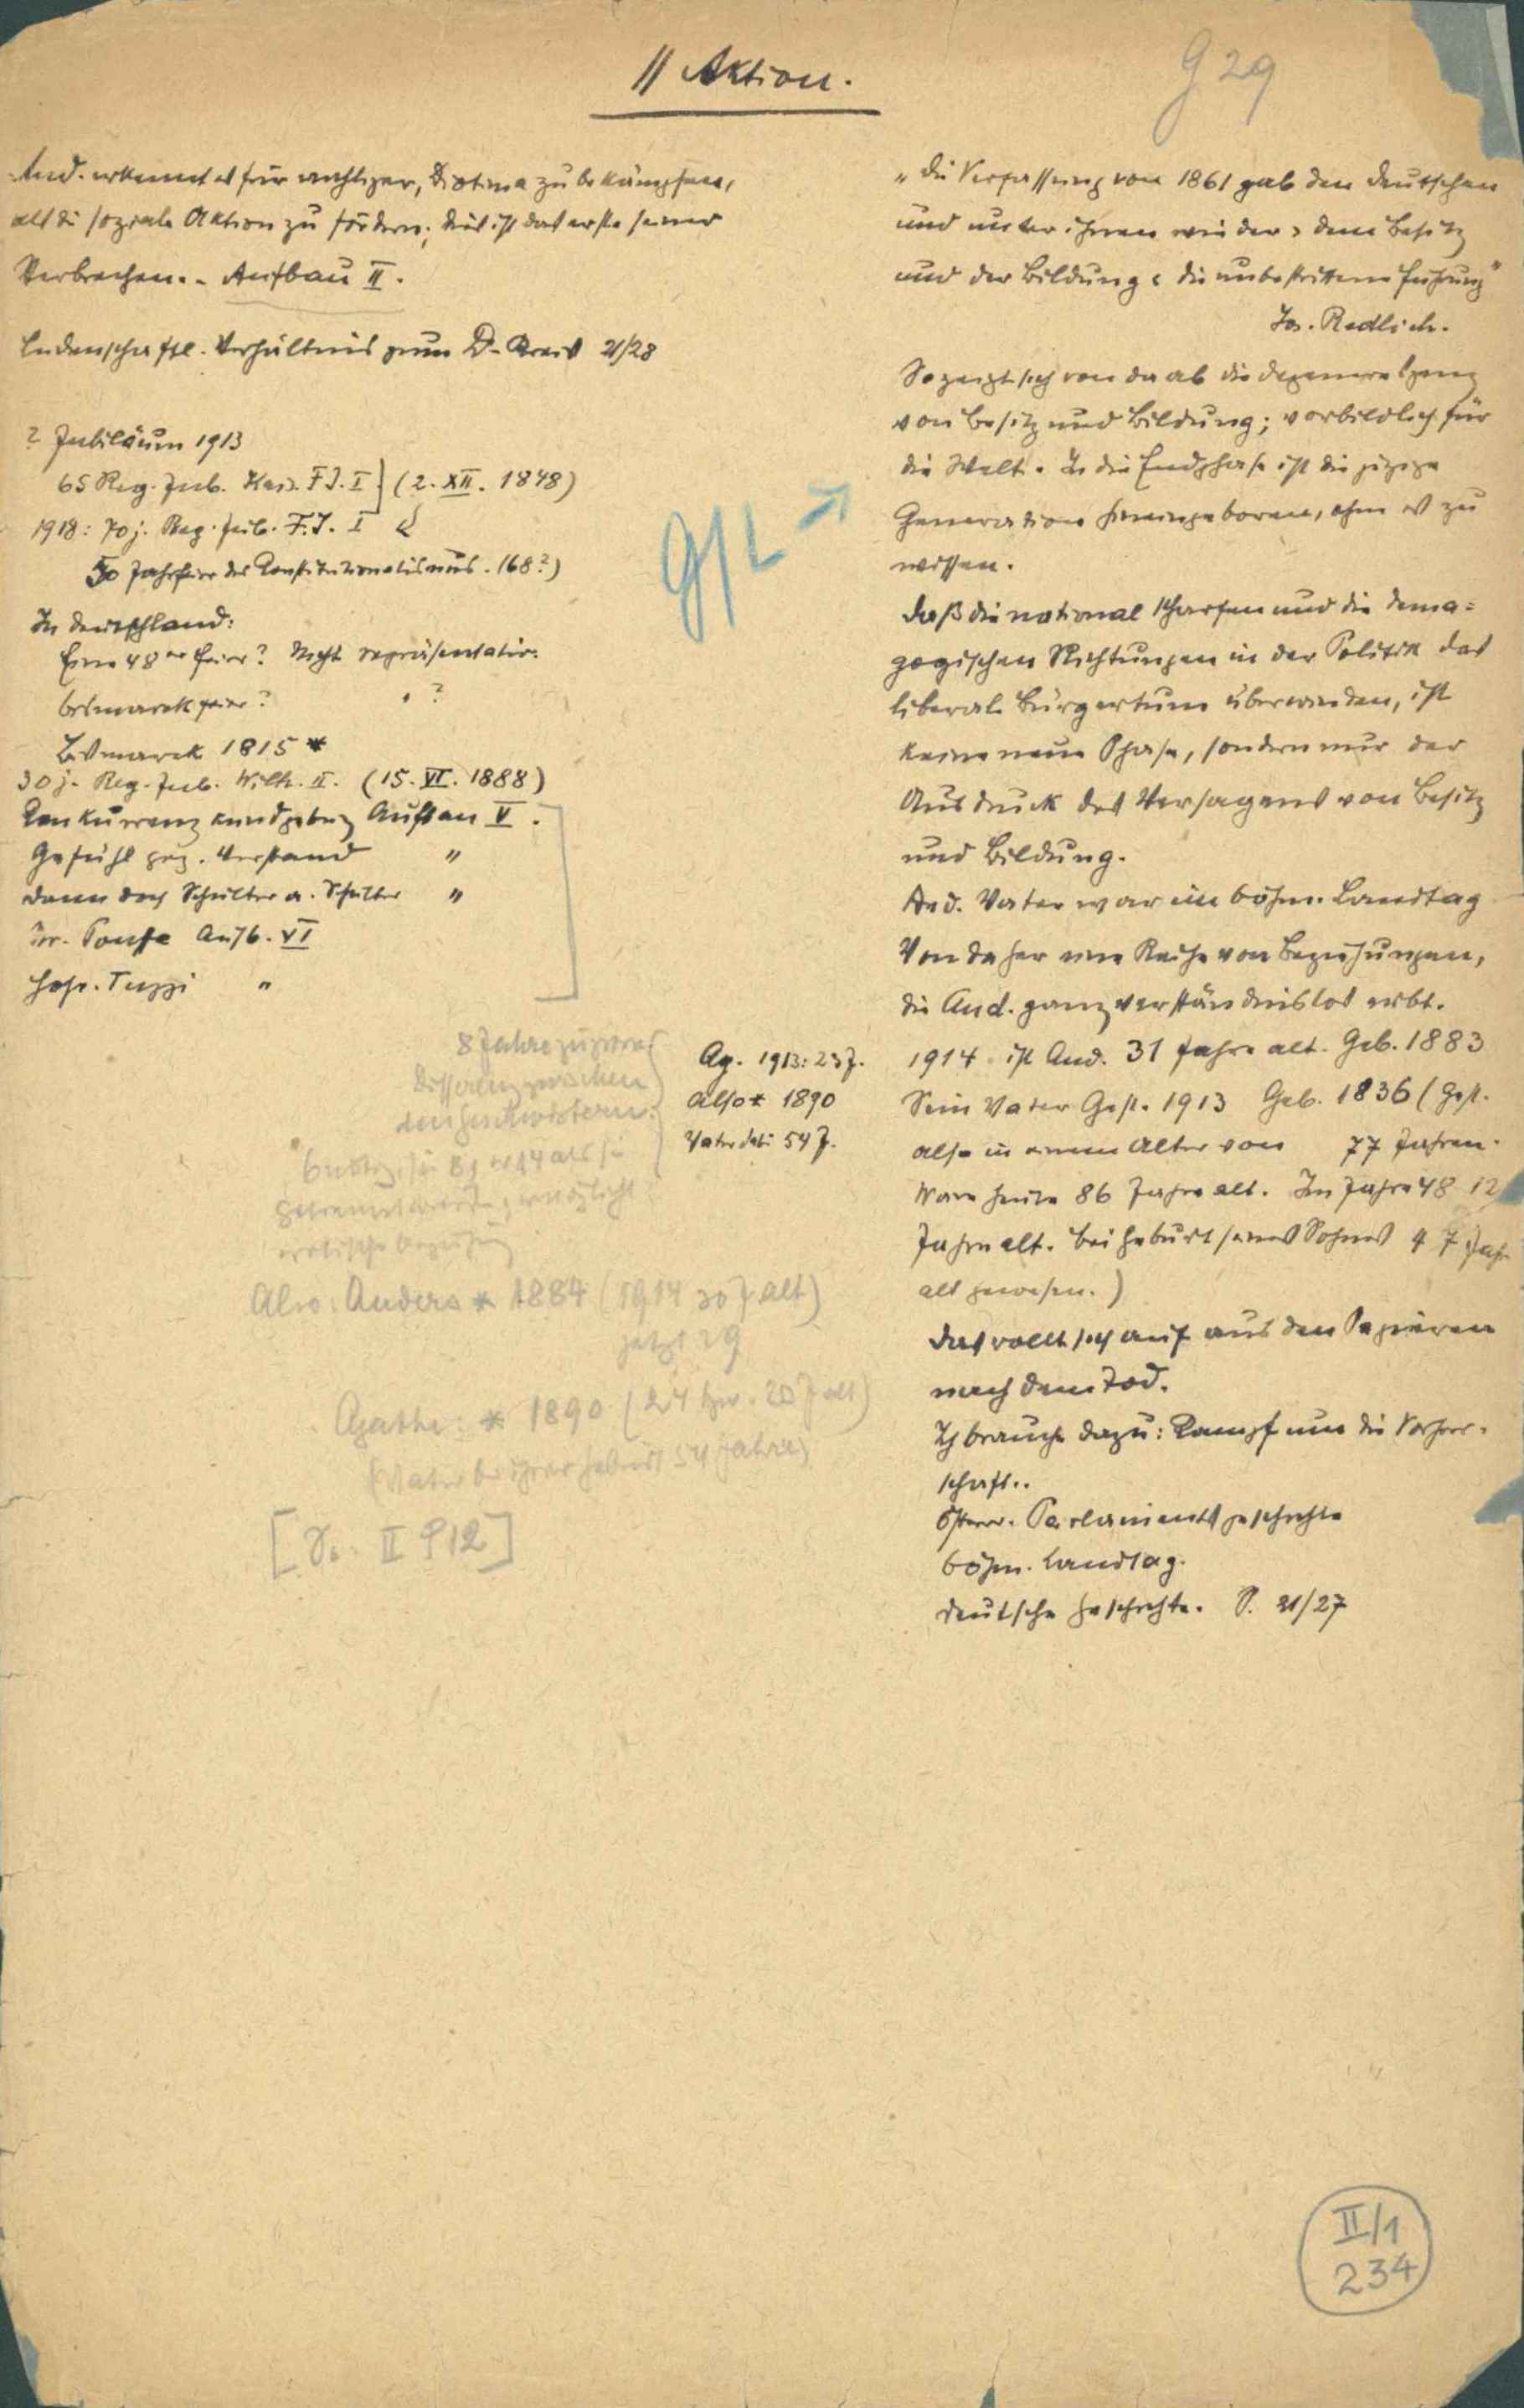 || Aktion.
g 29
And. erkennt es für wichtiger, Diotima zu bekämpfen,
als die soziale Aktion zu fördern; dies ist das erste seiner
Verbrechen. - Aufbau II.
Leidenschaftl. Verhältnis zum D-Kreis 21/28
? Jubiläum 1913
65 Reg. Jub. Kais. F.J. I } (2. XII. 1848)
1918: 70 j. Reg. Jub. F.J. I
50 Jahrfeier des Konstitutionalismus. 168?)
In Deutschland:
Eine 48er Feier? Nicht repräsentativ.
Bismarckfeier? " ?
Bismarck 1815 *
30 j. Reg. Jub. Wilh. II. (15. VI. 1888)
Konkurrenzkundgebung Aufbau V.
Gefühl geg. Verstand "
dann doch Schulter a. Schulter "
Aufb. VI
Tuzzi "
8 Jahre
Differenz zwischen
den Geschwistern.
Ag. 1913: 23 J.
Also * 1890
Vater dabei 54 J.
Also: Anders * 1884 (1914 30 J alt)
jetzt 29
Agathe: * 1890 (24 bzw. 20 J alt)
(Vater bei ihrer Geburt 54 Jahre)
[ II 912]
g/L
„Die Verfassung von 1861 gab den Deutschen
und unter ihnen wieder › dem Besitz
und der Bildung ‹ die unbestrittene Führung"
Jos. Redlich.
So zeigt sich von da ab die Degeneration
von Besitz und Bildung; vorbildlich für
die Welt. In die Endphase ist die jetzige
Generation hineingeboren, ohne es zu
wissen.
Daß die national scharfen und die dema=
gogischen Richtungen in der Politik das
liberale Bürgertum überwinden, ist
keine neue Phase, sondern nur der
Ausdruck des Versagens von Besitz
und Bildung.
And. Vater war im böhm. Landtag
Von daher eine Reihe von Beziehungen,
die And. ganz verständnislos erbt.
1914 ist And. 31 Jahre alt. Geb. 1883
Sein Vater Gest. 1913 Geb. 1836 (Gest.
also in einem Alter von 77 Jahren.
Wäre heute 86 Jahre alt. Im Jahre 48 12
Jahre alt. Bei Geburt seines Sohnes 47 Jahr
alt gewesen.)
Das rollt sich auf aus den Papieren
nach dem Tod.
Ich brauche dazu: Kampf um die Vorherr-
schaft..
Österr. Parlamentsgeschichte
böhm. Landtag.
Deutsche Geschichte. S. 21/27
II/1
234